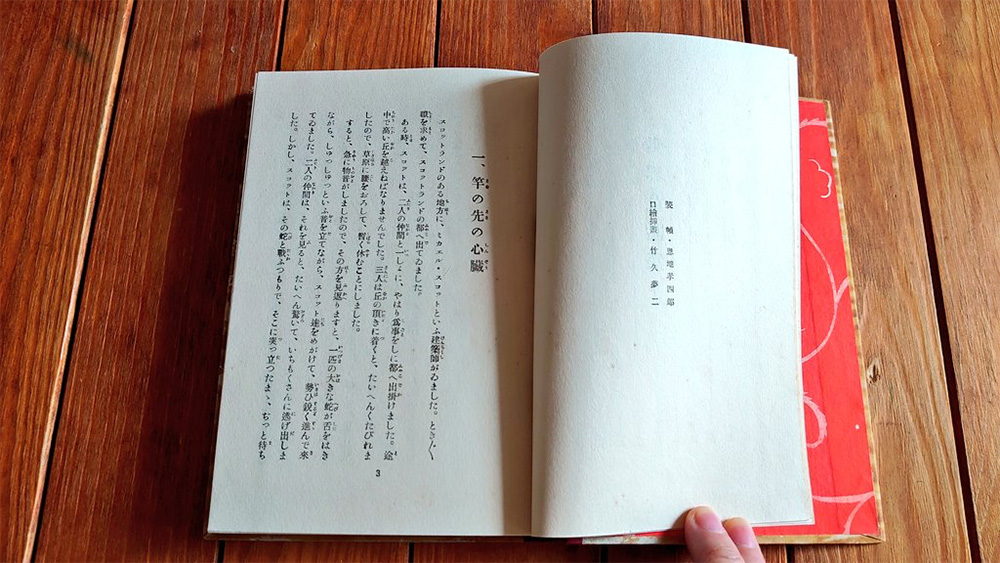 裝幀・恩地孝四郎
口繪挿畫・竹久夢二
一、竿の先の心臟
スコットランドのある地方に、ミカエル・スコットといふ建築師がゐました。ときどき
職を求めて、スコットランドの都へ出てゐました。
ある時、スコットは、二人の仲間と一しょに、やはり爲事をしに都へ出掛けました。途
中で高い丘を越えねばなりませんでした。三人は丘の頂きに着くと、たいへんくたびれま
したので、草原に腰をおろして、暫く休むことにしました。
すると、急に物音がしましたので、その方を見返りますと、一匹の大きな蛇が舌をはき
ながら、しゆつしゆつといふ音を立てながら、スコット達をめがけて、勢ひ鋭く進んで來
てゐました。二人の仲間は、それを見ると、たいへん驚いて、いちもくさんに逃げ出しま
した。しかし、スコットは、その蛇と戰ふつもりで、そこに突つ立つたまゝ、ぢつと待ち
3